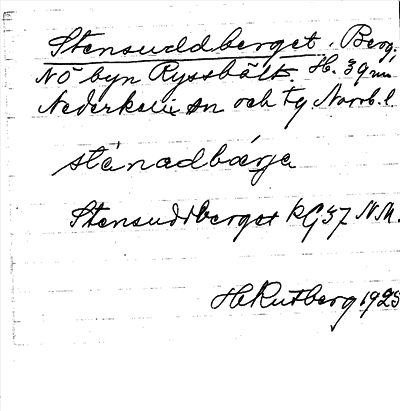 Stensuddberget. Berg.
NÖ byn Ryssbält. H. 39 m
Nederkalix sn och tg Norrb. l.
stènadbærje
Stensuddberget kG 37 N.M.
HRutberg 1925